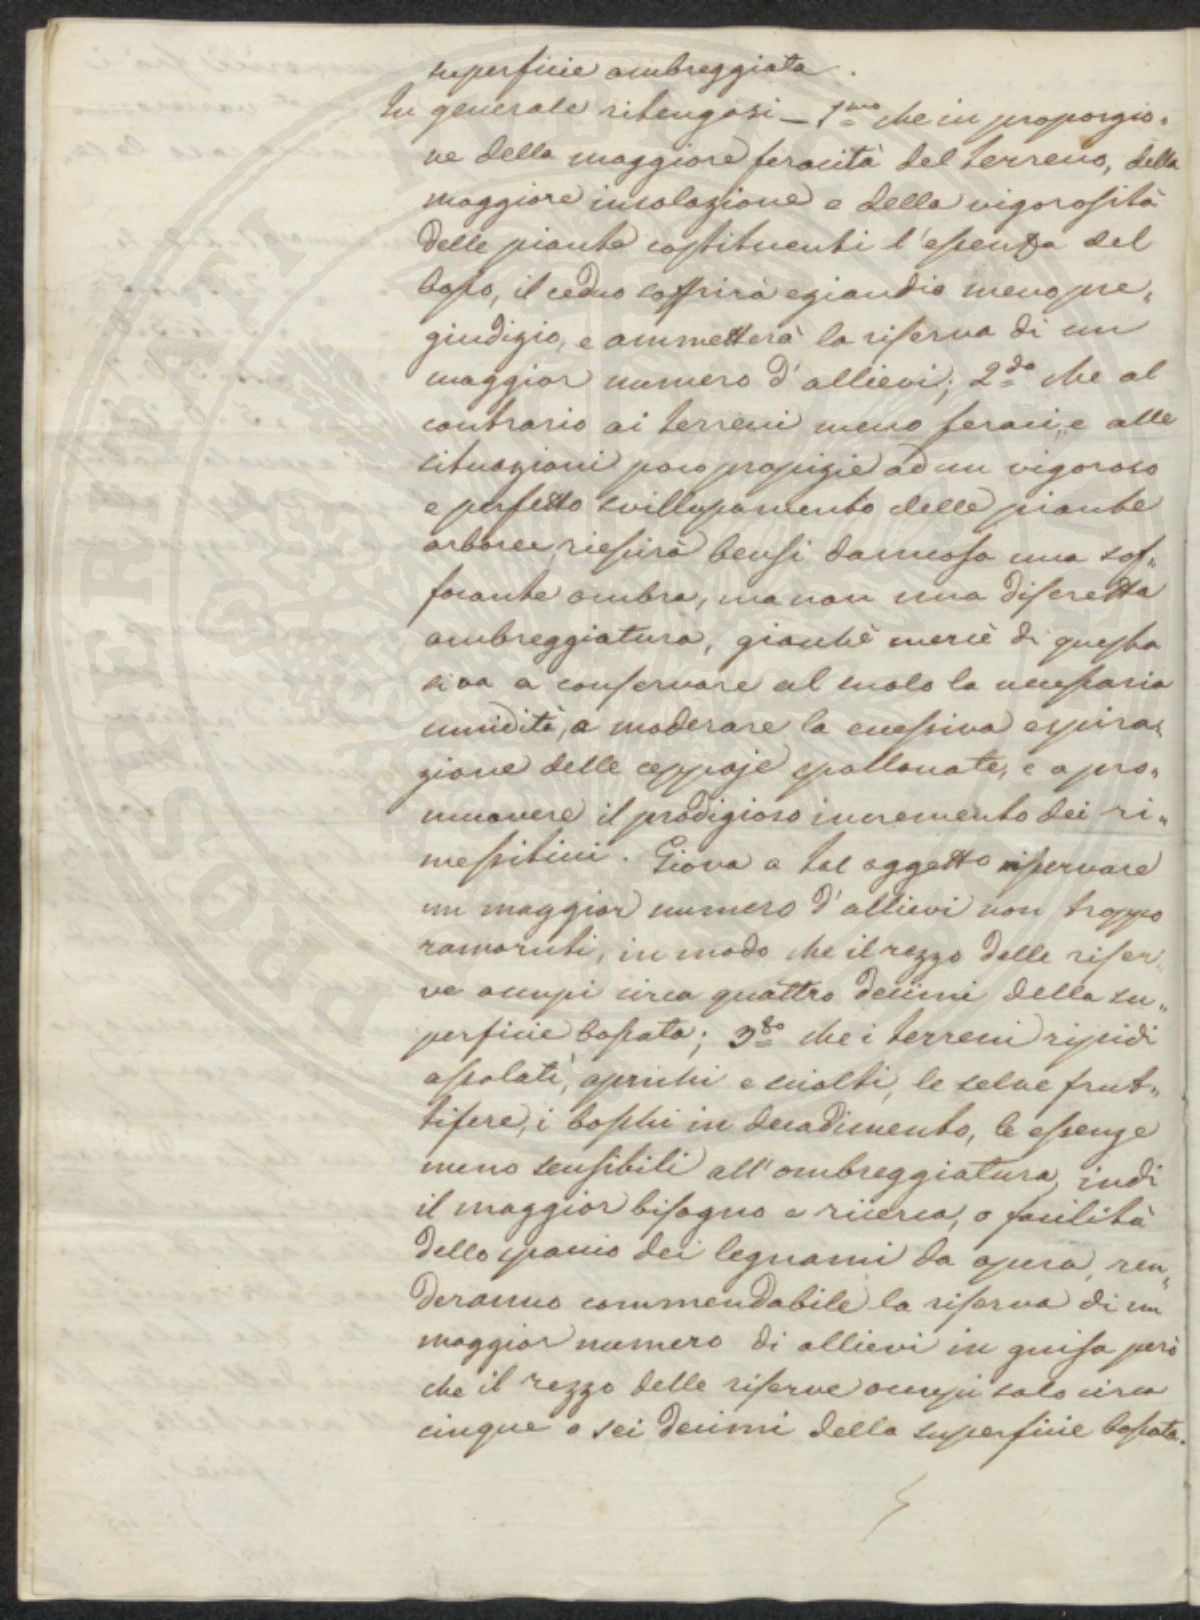 superficie ombreggiata.
In generale ritengasi – 1mo che in proporzio-
ne della maggiore feracità del terreno, della
maggiore insolazione e della vigorosità
delle piante costituenti l'essenza del
bosco, il ceduo soffrirà eziandio meno pre-
giudizio, e ammetterà la riserva di un
maggior numero d'allievi; 2do che al
contrario ai terreni meno feraci, e alle
situazioni poco propizie ad un vigoroso
e perfetto svilluppamento delle piante
arboree, riescirà bensi dannosa una sof-
focante ombra, ma non una discretta
ombreggiatura, giacchè mercè di questa
si va a conservare al suolo la necessaria
umidità, a moderare la eccessiva espira-
zione delle ceppaje spollonate, e a pro-
muovere il prodigioso incremento dei ri-
messitini. Giova a tal oggetto riservare
un maggior numero d'allievi non troppo
ramoruti, in modo che il rezzo delle riser-
ve occupi circa quattro decimi della su-
perficie boscata; 3zo che i terreni ripidi
assolati, aprichi e sciolti, le selve frut-
tifere, i boschi in decadimento, le essenze
meno sensibili all'ombreggiatura, indi
il maggior bisogno e ricerca, o facilità
dello spaccio dei legnami da opera, ren-
deranno commendabile la riserva di un
maggior numero di allievi in guisa però
che il rezzo delle riserve occupi solo circa
cinque o sei decimi della superficie boscata.
PROSPERITATI PUBLICÆ